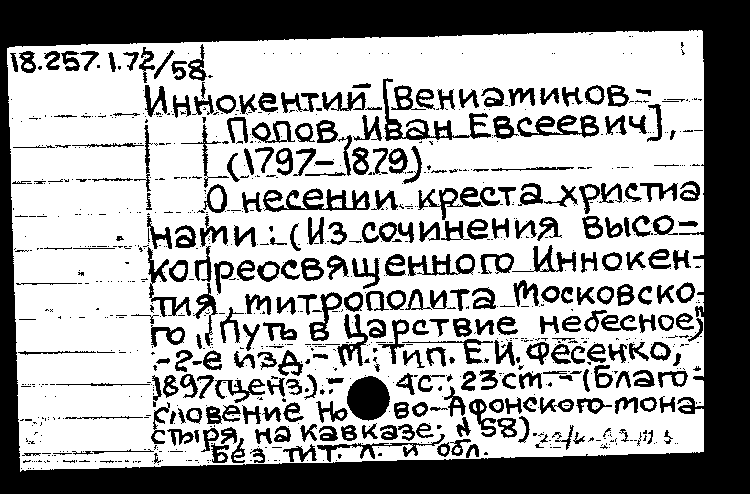 18.257.1.72/58.
Иннокентий [Вениаминов-
Попов, Иван Евсеевич],
(1797-1879).
О несении креста христиа
нами: (Из сочинения высо-
копреосвященного Иннокен-
тия, митрополита Московско-
го „Путь в Царствие небесное")
.-2-е изд.- М.: Тип. Е.И. Фесенко,
1897(ценз.).- 4с.; 23см.-(Благо-
словение Но во-Афонского мона-
стыря, на Кавказе; № 58).
Без тит. л. и обл.